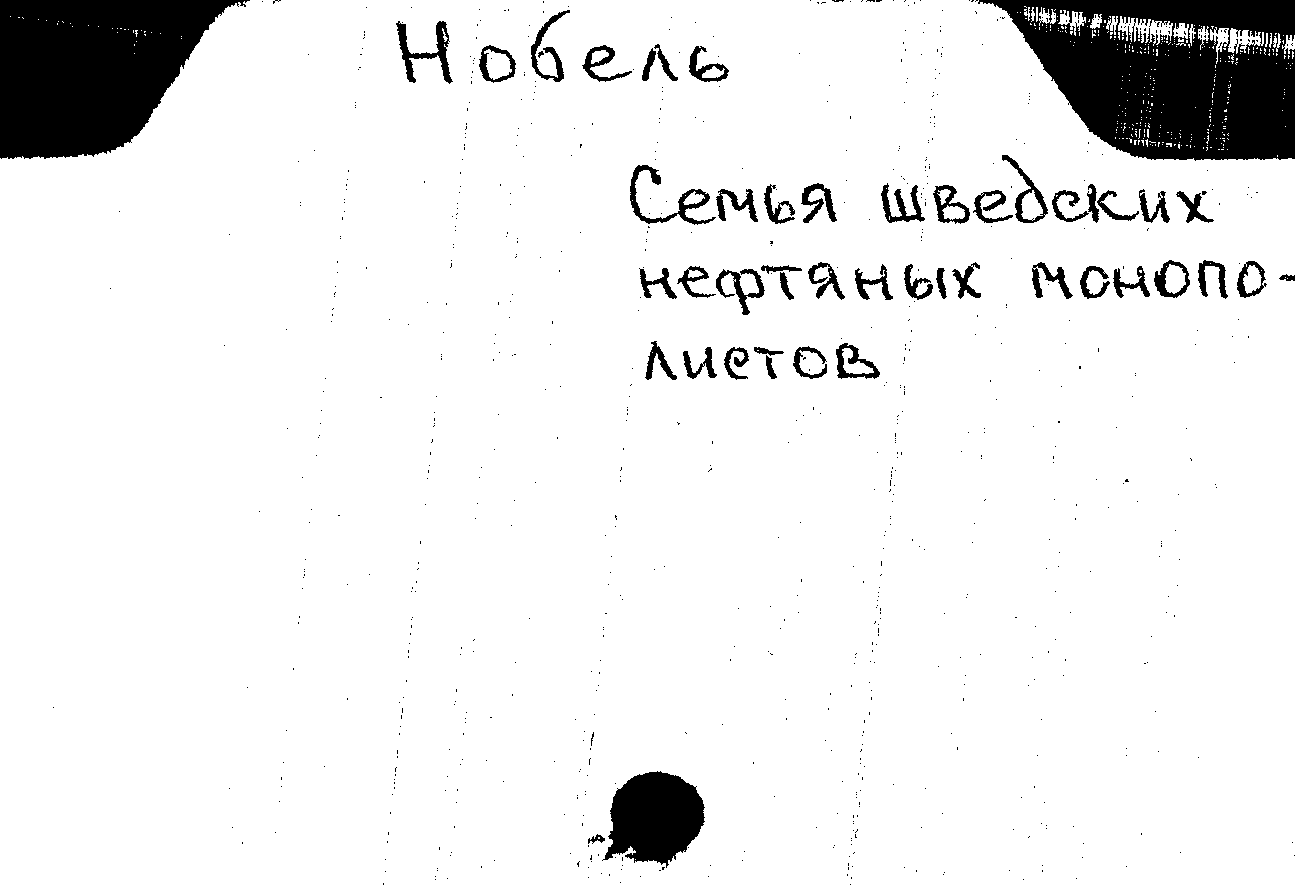 Нобель
Семья шведских
нефтяных монопо-
листов